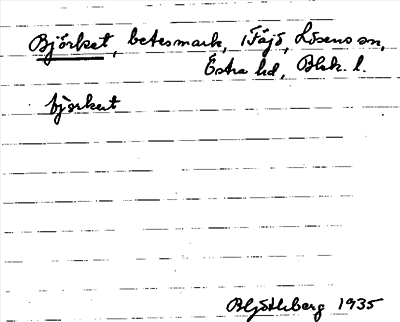 Björket, betesmark, i Fäjö, Lösens sn,
Östra hd, Blek. l.
björket
B Hj Öthberg 1935